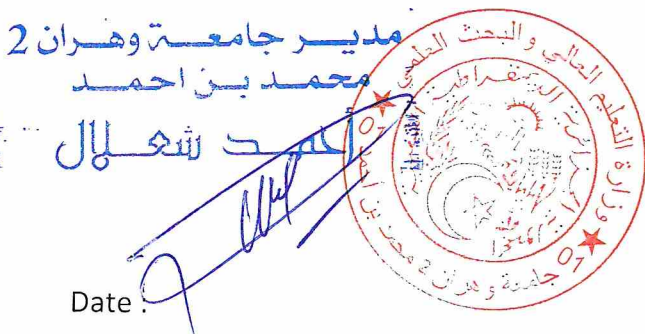 مديـر جامعـة وهـران 2
محمد بن احمد
أحمد شعلال
وزارة التعليم العالي و البحث العلمي
جامعة وهران 2 محمد بن أحمد
01
01
Date :